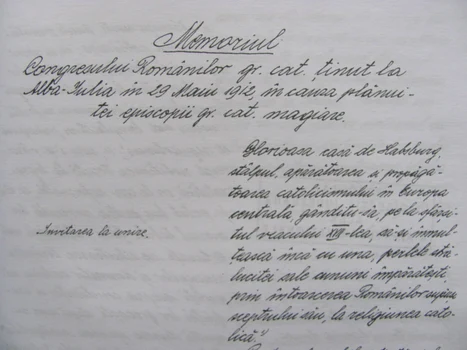 Memoriul
Congresului Românilor gr. cat. ținut la
Alba-Iulia în 29 Maiu 1912, în cauza plănui-
tei episcopii gr. cat. magiare.
Glorioasa casă de Habsburg,
stâlpul, apărătoarea și propagă-
toarea catolicismului în Europa
centrala, gânditu-s'a, pe la sfârși-
tul veacului XVII-lea, să-și înmul-
țiască încă cu una, perlele stră-
lucitei sale cununi împărătești,
prin întoarcerea Românilor supuși
sceptrului său, la religiunea cato-
lică."
Invitarea la unire.